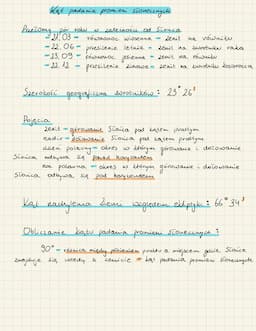 Kąt padania promieni słonecznych
Poziomy pór roku w zależności od Słońca
- 21.03 - równonoc wiosenna - zenit na równiku
- 22.06 - przesilenie letnie - zenit na zwrotniku raka
- 23.09 - równonoc jesienna - zenit na równiku
- 22.12 - przesilenie zimowe - zenit na zwrotniku koziorożca
Szerokość geograficzna zwrotników: 23°26'
Pojęcia
zenit - górowanie Słońca pod kątem prostym
nadir - dołowanie Słońca pod kątem prostym
dzień polarny - okres w którym górowanie i dołowanie
Słońca odbywa się ponad horyzontem
noc polarna - okres w którym górowanie i dołowanie
Słońca odbywa się pod horyzontem
Kąt nachylenia Ziemi względem ekliptyki: 66°34'
Obliczanie kąta padania promieni słonecznych:
90° - różnica między położeniem punktu a miejscem gdzie Słońce
znajduje się wtedy w zenicie = kąt padania promieni słonecznych